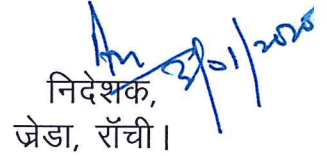 3/01/2020
निदेशक,
ज्रेडा, रॉची।